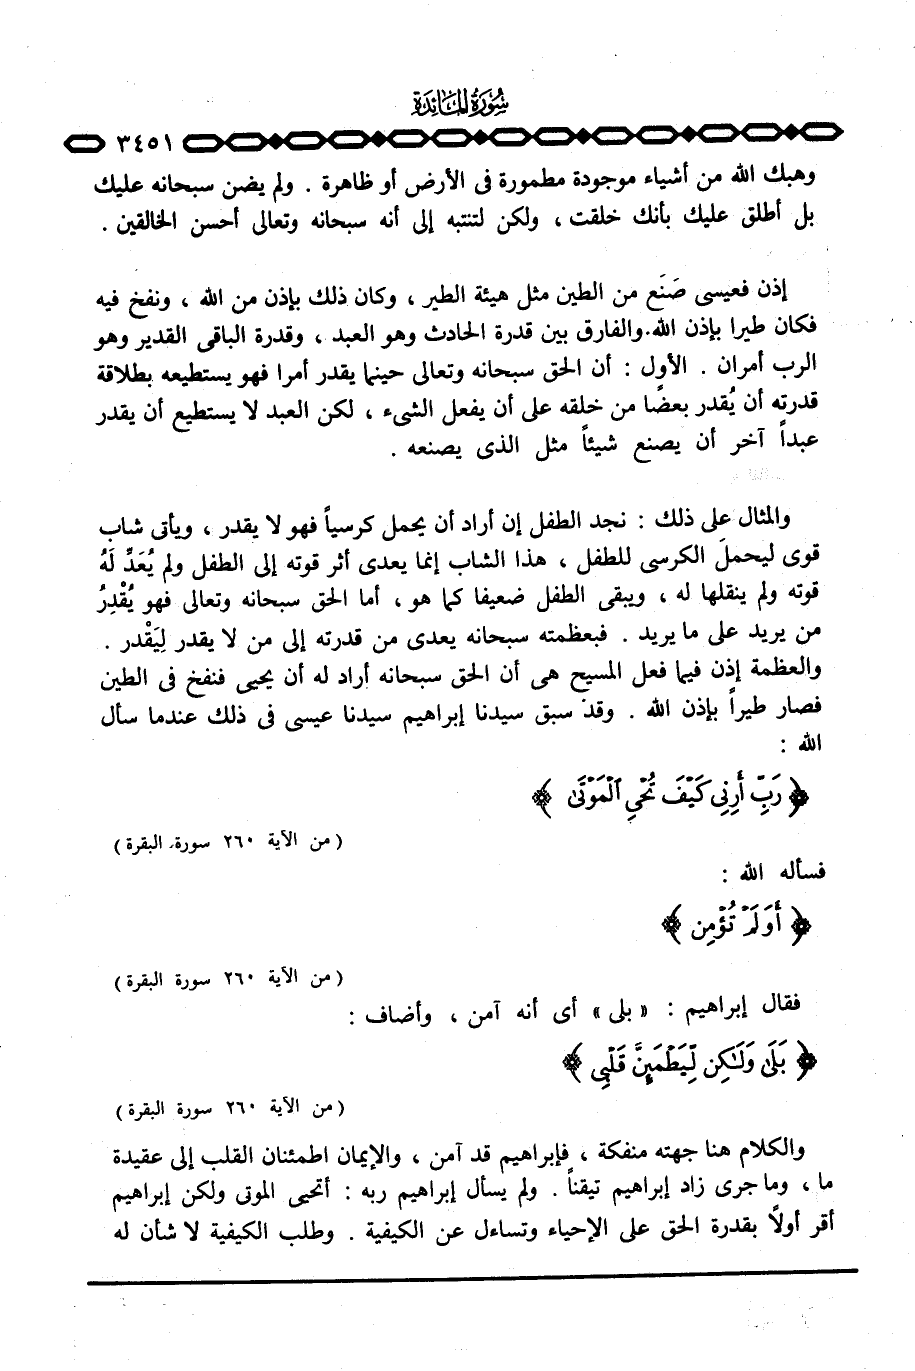 سُورَةُ المَائِدَة
٣٤٥١
وهبك الله من أشياء موجودة مطمورة فى الأرض أو ظاهرة . ولم يضن سبحانه عليك
بل أطلق عليك بأنك خلقت ، ولكن لتنتبه إلى أنه سبحانه وتعالى أحسن الخالقين .
إذن فعيسى صَنَع من الطين مثل هيئة الطير ، وكان ذلك بإذن من الله ، ونفخ فيه
فكان طيرا بإذن الله.والفارق بين قدرة الحادث وهو العبد ، وقدرة الباقى القدير وهو
الرب أمران . الأول : أن الحق سبحانه وتعالى حينما يقدر أمرا فهو يستطيعه بطلاقة
قدرته أن يُقدر بعضًا من خلقه على أن يفعل الشىء ، لكن العبد لا يستطيع أن يقدر
عبداً آخر أن يصنع شيئاً مثل الذى يصنعه .
والمثال على ذلك : نجد الطفل إن أراد أن يحمل كرسياً فهو لا يقدر ، ويأتى شاب
قوى ليحملَ الكرسى للطفل ، هذا الشاب إنما يعدى أثر قوته إلى الطفل ولم يُعَدِّ لَهُ
قوته ولم ينقلها له ، ويبقى الطفل ضعيفا كما هو ، أما الحق سبحانه وتعالى فهو يُقْدِرُ
من يريد على ما يريد . فبعظمته سبحانه يعدى من قدرته إلى من لا يقدر لِيَقْدر .
والعظمة إذن فيما فعل المسيح هى أن الحق سبحانه أراد له أن يحيى فنفخ فى الطين
فصار طيراً بإذن الله . وقد سبق سيدنا إبراهيم سيدنا عيسى فى ذلك عندما سأل
الله :
﴿ رَبِّ أَرِنِي كَيْفَ تُحْيِ الْمَوْتَىٰ ﴾
( من الآية ٢٦٠ سورة البقرة )
فسأله الله :
﴿ أَوَلَمْ تُؤْمِن ﴾
( من الآية ٢٦٠ سورة البقرة )
فقال إبراهيم : « بلى » أى أنه آمن ، وأضاف :
﴿ بَلَىٰ وَلَٰكِن لِّيَطْمَئِنَّ قَلْبِي ﴾
( من الآية ٢٦٠ سورة البقرة )
والكلام هنا جهته منفكة ، فإبراهيم قد آمن ، والإيمان اطمئنان القلب إلى عقيدة
ما ، وما جرى زاد إبراهيم تيقناً . ولم يسأل إبراهيم ربه : أتحيى الموتى ولكن إبراهيم
أقر أولاً بقدرة الحق على الإحياء وتساءل عن الكيفية . وطلب الكيفية لا شأن له